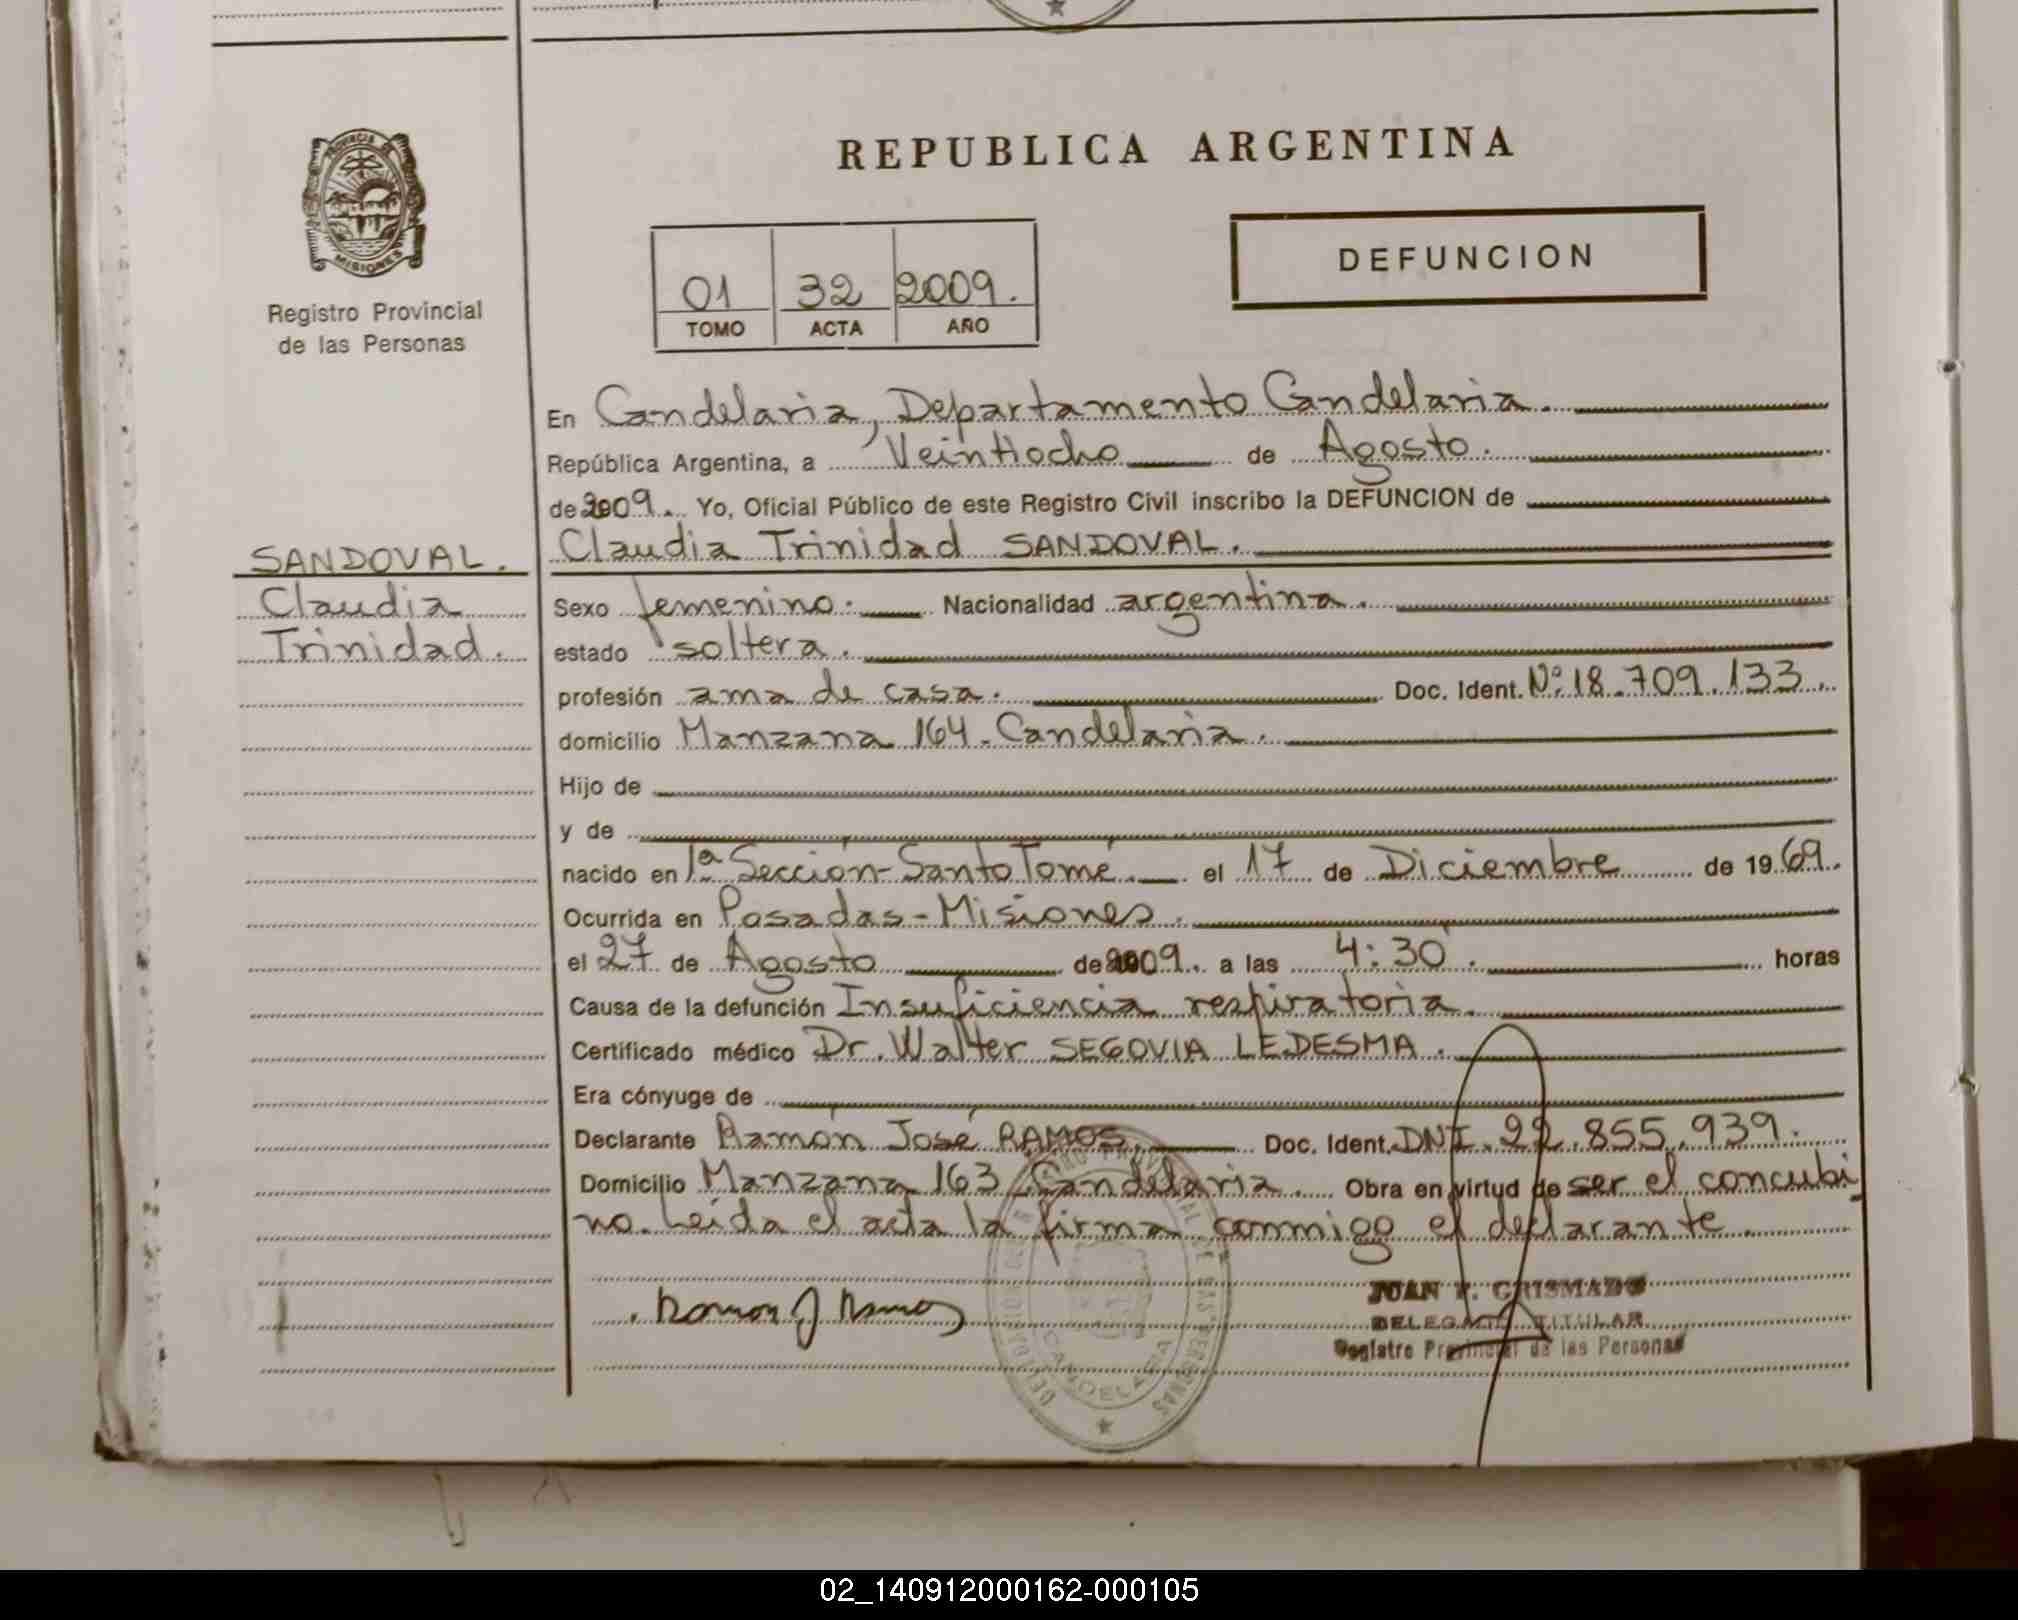 PROVINCIA DE
MISIONES
Registro Provincial
de las Personas
REPUBLICA ARGENTINA
01 32 2009.
TOMO ACTA AÑO
DEFUNCION
En Candelaria, Departamento Candelaria.
República Argentina, a Veintiocho de Agosto.
de 2009. Yo, Oficial Público de este Registro Civil inscribo la DEFUNCION de
SANDOVAL.
Claudia
Trinidad.
Claudia Trinidad SANDOVAL.
Sexo femenino. Nacionalidad argentina.
estado soltera.
profesión ama de casa. Doc. Ident. Nº 18.709.133.
domicilio Manzana 164. Candelaria.
Hijo de
y de
nacido en 1ª Sección-Santo Tomé. el 17 de Diciembre de 1969.
Ocurrida en Posadas-Misiones.
el 27 de Agosto de 2009. a las 4:30. horas
Causa de la defunción Insuficiencia respiratoria.
Certificado médico Dr. Walter SEGOVIA LEDESMA.
Era cónyuge de
Declarante Ramón José RAMOS. Doc. Ident. DNI. 22.855.939.
Domicilio Manzana 163 Candelaria. Obra en virtud de ser el concubi
no. Leída el acta la firma conmigo el declarante.
Ramon J Ramos
JUAN F. GRISMADO
DELEGADO TITULAR
Registro Provincial de las Personas
CANDELARIA
02_140912000162-000105